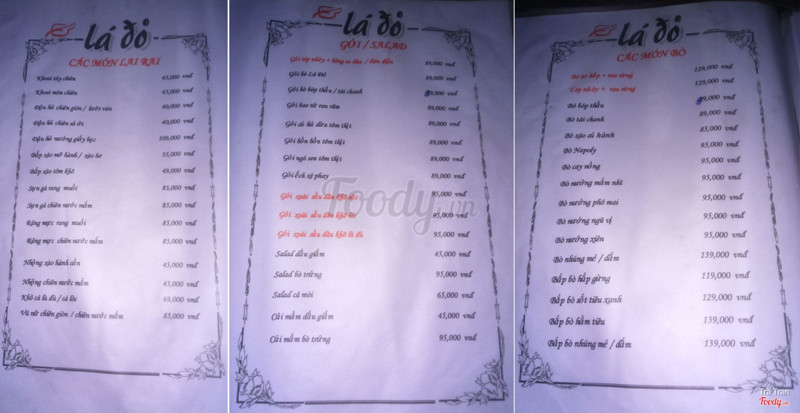 lá đỏ
CÁC MÓN LAI RAI
Khoai tây chiên 45,000 vnđ
Khoai môn chiên 45,000 vnđ
Đậu hũ chiên giòn / lướt ván 40,000 vnđ
Đậu hũ chiên sả ớt 40,000 vnđ
Đậu hũ nướng giấy bạc 109,000 vnđ
Bắp xào mỡ hành / xào bơ 35,000 vnđ
Bắp xào tôm khô 49,000 vnđ
Sụn gà rang muối 85,000 vnđ
Sụn gà chiên nước mắm 85,000 vnđ
Răng mực rang muối 85,000 vnđ
Răng mực chiên nước mắm 85,000 vnđ
Nhộng xào hành cần 45,000 vnđ
Nhộng chiên nước mắm 45,000 vnđ
Khô cá lù đù / cá lóc 69,000 vnđ
Vú nữ chiên giòn / chiên nước mắm 85,000 vnđ
lá đỏ
GỎI / SALAD
89,000 vnđ
Gỏi bò Lá Đỏ 89,000 vnđ
Gỏi bò bóp thấu / tái chanh 89,000 vnđ
Gỏi bao tử rau răm 89,000 vnđ
Gỏi củ hũ dừa tôm thịt 89,000 vnđ
Gỏi bồn bồn tôm thịt 89,000 vnđ
Gỏi ngó sen tôm thịt 89,000 vnđ
Gỏi ếch xé phay 89,000 vnđ
Gỏi xoài sầu đâu 95,000 vnđ
Gỏi xoài sầu đâu khô lóc 95,000 vnđ
Gỏi xoài sầu đâu khô lù đù 95,000 vnđ
Salad dầu giấm 45,000 vnđ
Salad bò trứng 95,000 vnđ
Salad cá mòi 65,000 vnđ
Cải mầm dầu giấm 45,000 vnđ
Cải mầm bò trứng 95,000 vnđ
Foody.vn
lá đỏ
CÁC MÓN BÒ
Bò tơ hấp + rau rừng 129,000 vnđ
+ rau rừng 129,000 vnđ
Bò bóp thấu 89,000 vnđ
Bò tái chanh 89,000 vnđ
Bò xào củ hành 85,000 vnđ
Bò Napoly 95,000 vnđ
Bò cay nồng 95,000 vnđ
Bò nướng mắm nhĩ 95,000 vnđ
Bò nướng phô mai 95,000 vnđ
Bò nướng ngũ vị 95,000 vnđ
Bò nướng xiên 95,000 vnđ
Bò nhúng mẻ / dấm 139,000 vnđ
Bắp bò hấp gừng 119,000 vnđ
Bắp bò xốt tiêu xanh 129,000 vnđ
Bắp bò hầm tiêu 139,000 vnđ
Bắp bò nhúng mẻ / dấm 139,000 vnđ
Trà Tran
Foody.vn